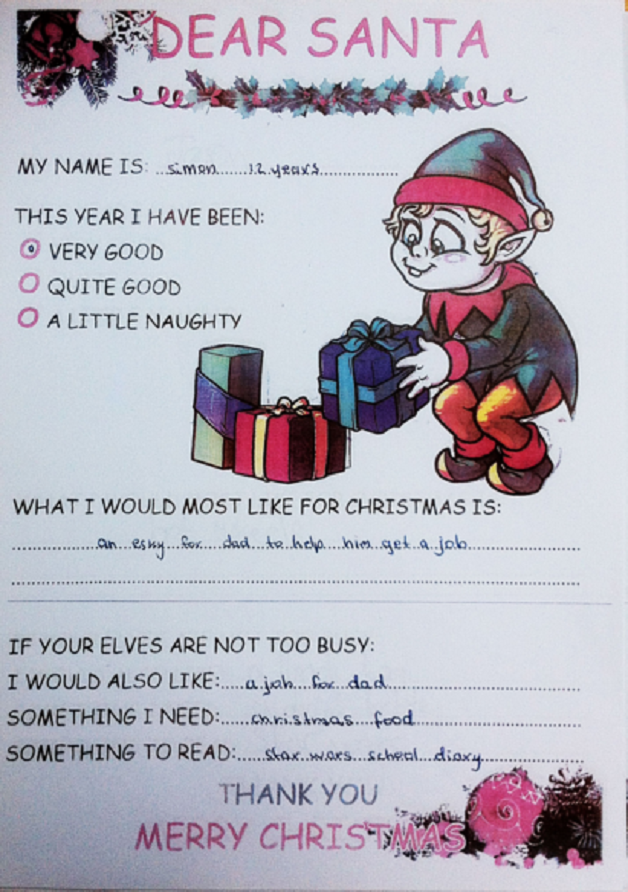 DEAR SANTA
MY NAME IS: simon 12 years
THIS YEAR I HAVE BEEN:
VERY GOOD
QUITE GOOD
A LITTLE NAUGHTY
WHAT I WOULD MOST LIKE FOR CHRISTMAS IS:
an esky for dad to help him get a job
IF YOUR ELVES ARE NOT TOO BUSY:
I WOULD ALSO LIKE: a job for dad
SOMETHING I NEED: christmas food
SOMETHING TO READ: star wars school diary
THANK YOU
MERRY CHRISTMAS